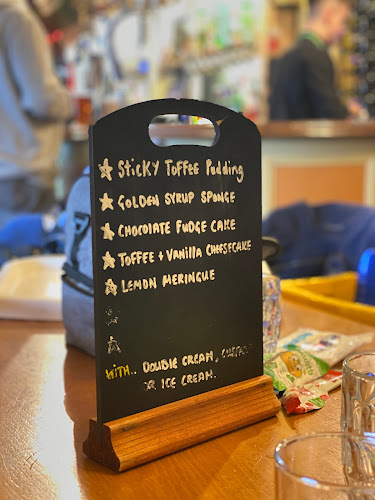 Sticky Toffee Pudding
Golden Syrup Sponge
Chocolate Fudge Cake
Toffee + Vanilla Cheesecake
Lemon Meringue
With.. Double Cream,
or Ice Cream.